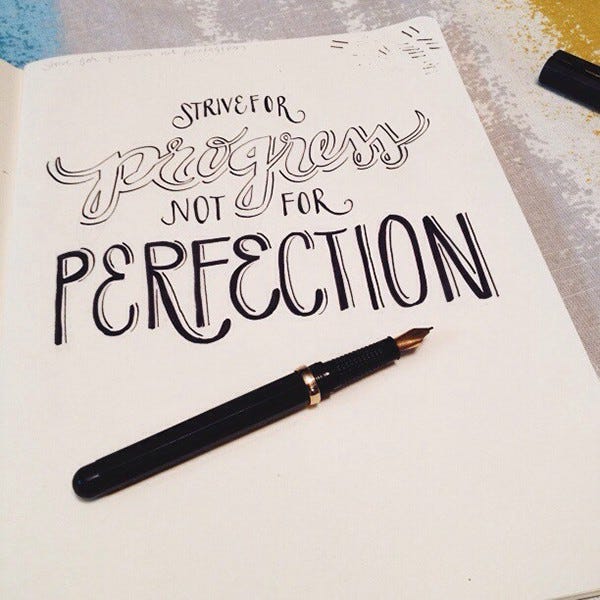 STRIVE FOR
progress
NOT FOR
PERFECTION